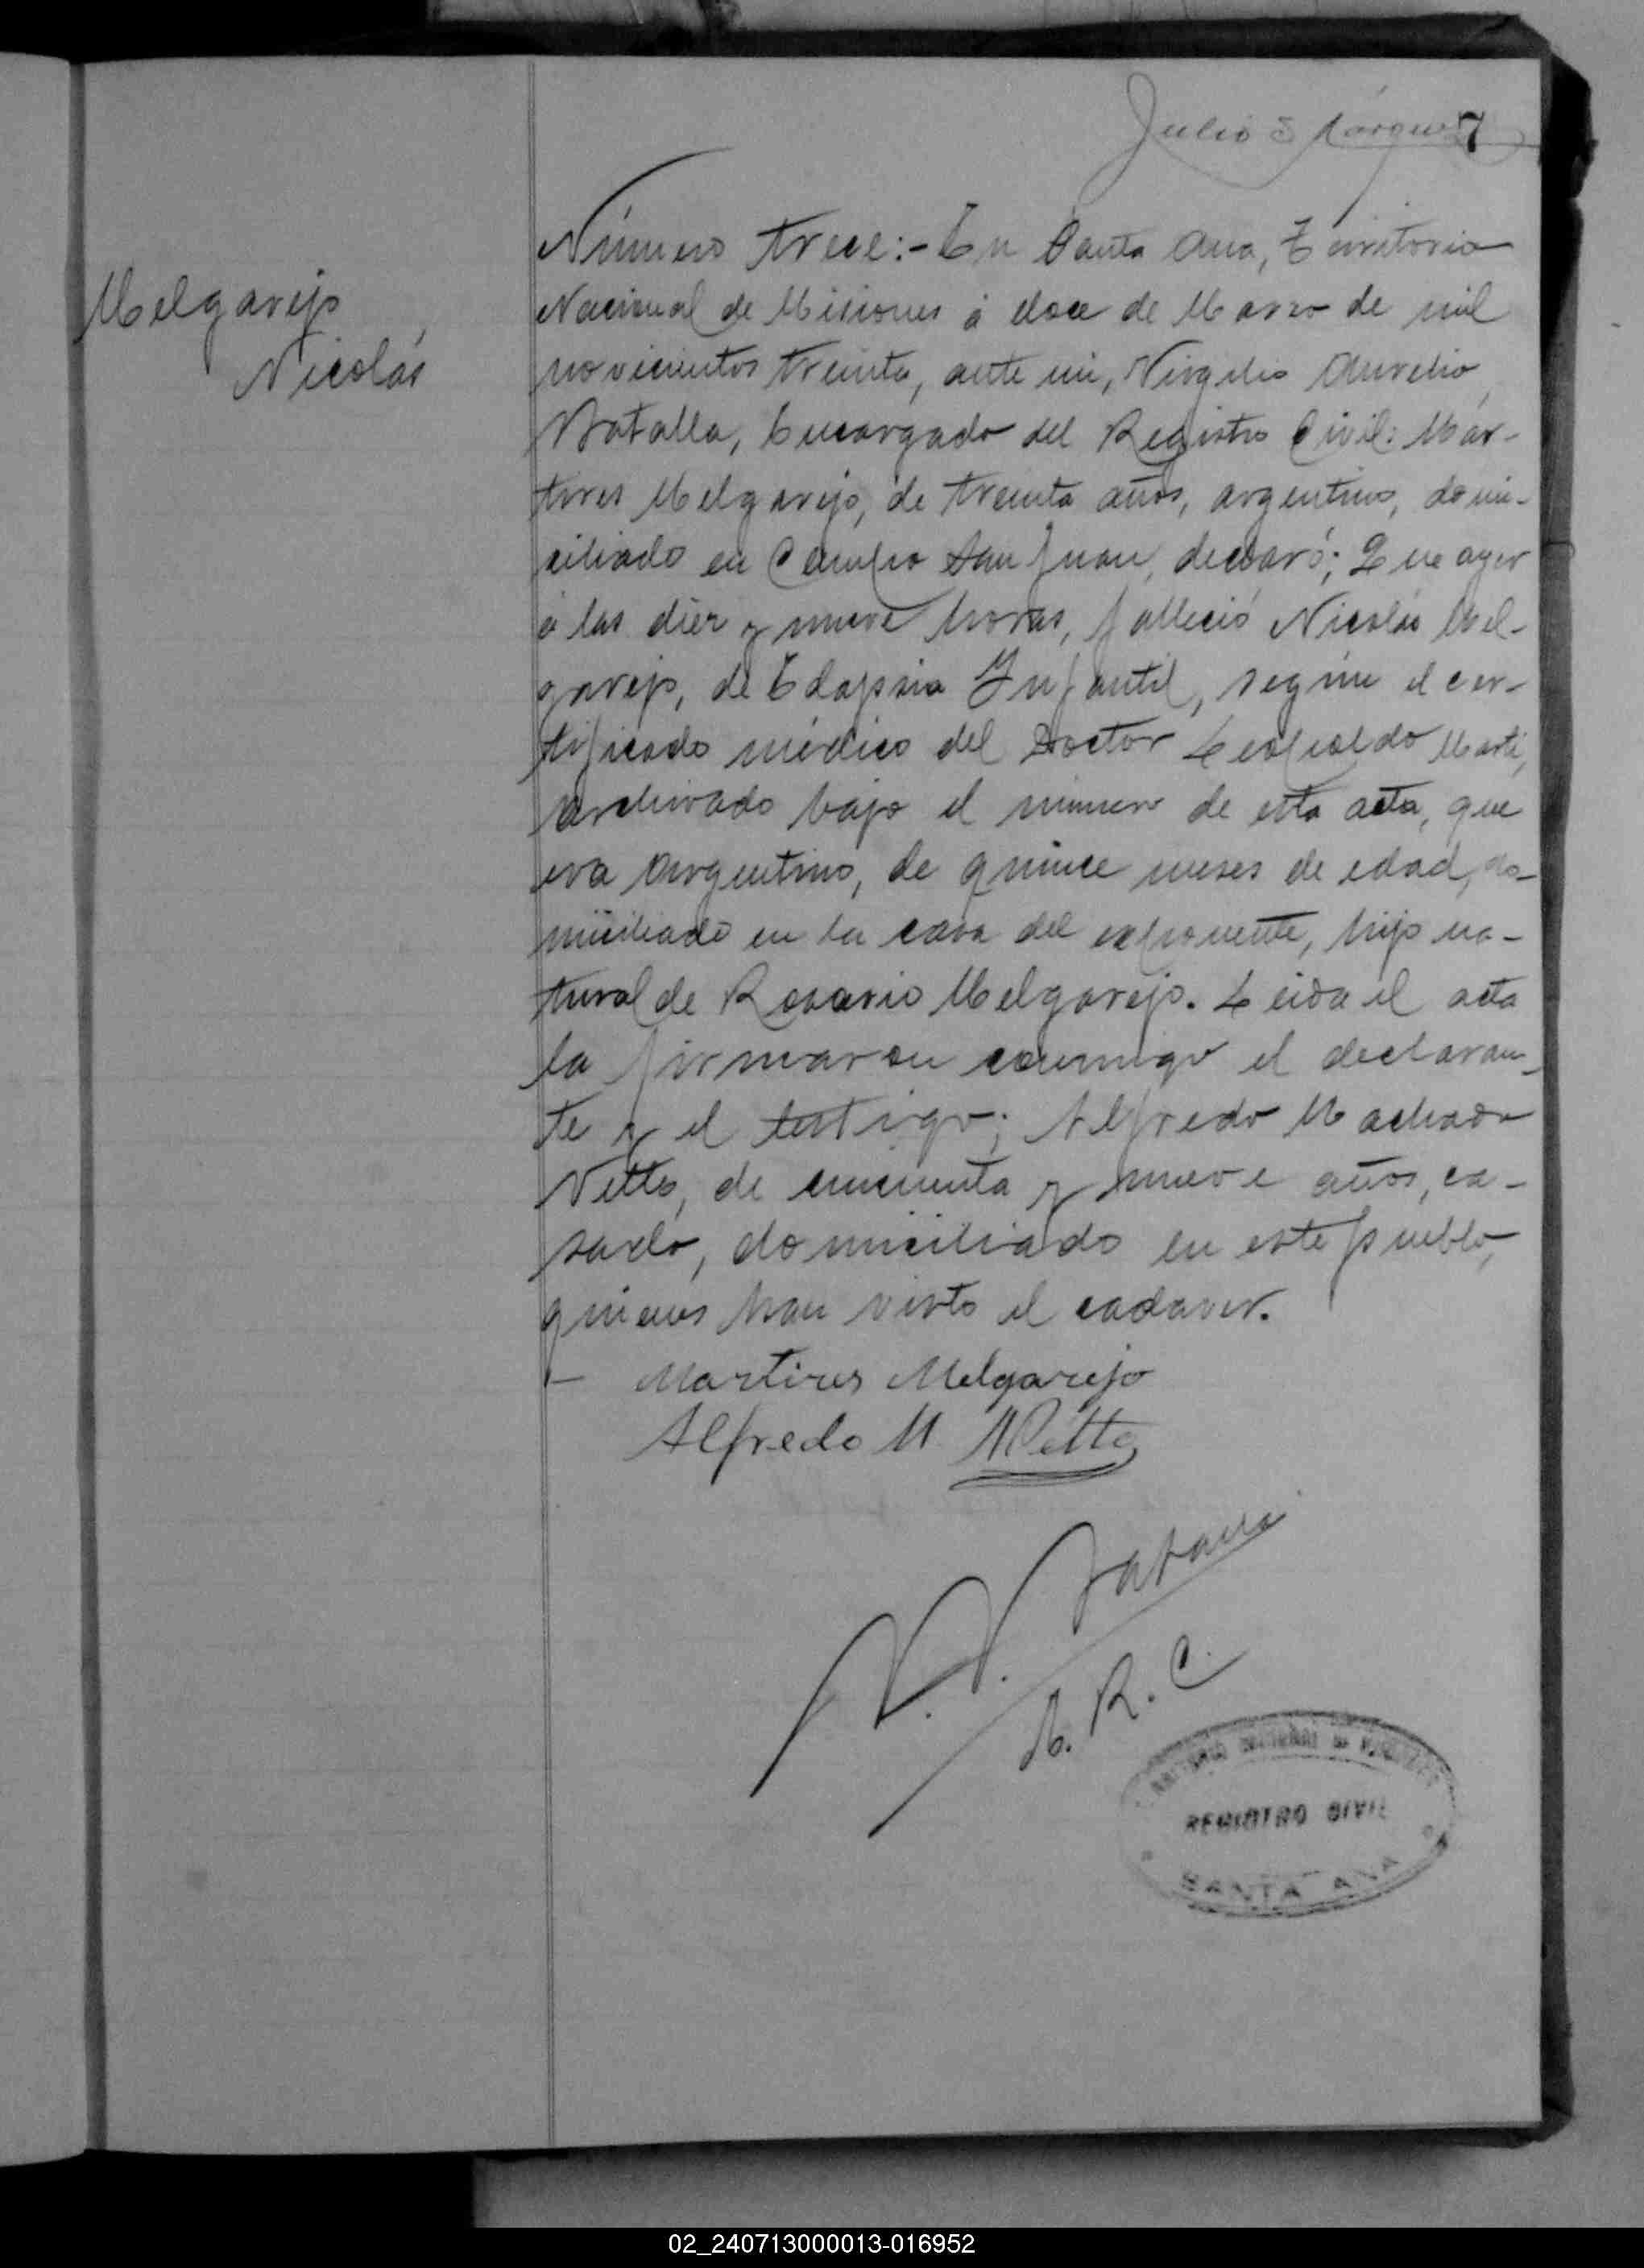 Julio S Márquez
7
Melgarejo
Nicolás
Número trece:- En Santa Ana, Territorio
Nacional de Misiones á doce de Marzo de mil
novecientos treinta, ante mi, Virgilio Aurelio
Batalla, Encargado del Registro Civil: Már-
tires Melgarejo, de treinta años, argentino, domi-
ciliado en Campo San Juan, declaró; Que ayer
á las diez y nueve horas, falleció Nicolás Mel-
garejo, de Eclapsia Infantil, según el cer-
tificado médico del Doctor Leopoldo Marti,
archivado bajo el número de esta acta, que
era Argentino, de quince meses de edad, do-
miciliado en la casa del exponente, hijo na-
tural de Rosario Melgarejo. Leida el acta
la firmaron conmigo el declaran-
te y el testigo; Alfredo Machado
Netto, de cincuenta y nueve años, ca-
sado, domiciliado en este pueblo,
quienes han visto el cadaver.
Martires Melgarejo
Alfredo M. Netto
V. A. Batalla
E. R. C.
TERRITORIO NACIONAL DE MISIONES
REGISTRO CIVIL
SANTA ANA
02_240713000013-016952